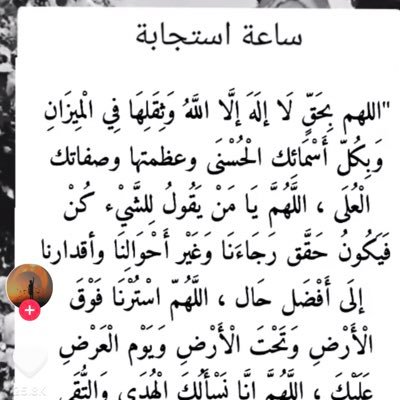 ساعة استجابة
"اللهم بِحَقِّ لَا إلَهَ إلَّا اللَّهُ وَثِقَلِهَا فِي الْمِيزَانِ
وَبِكُلّ أَسْمَائِك الْحُسْنَى وعظمتها وصفاتك
الْعُلَى ، اللَّهُمَّ يَا مَنْ يَقُولُ لِلشَّيْء كُنْ
فَيَكُونُ حَقَّق رَجَاءَنَا وَغَيْر أَحْوَالِنَا وأقدارنا
إلَى أَفْضَل حَال ، اللَّهُمّ اسْتُرْنَا فَوْقَ
الْأَرْضِ وَتَحْتَ الْأَرْضِ وَيَوْم الْعَرْضِ
عَلَيْكَ ، اللَّهُمَّ إنَّا نَسْأَلُكَ الْهُدَى وَالتُّقَى